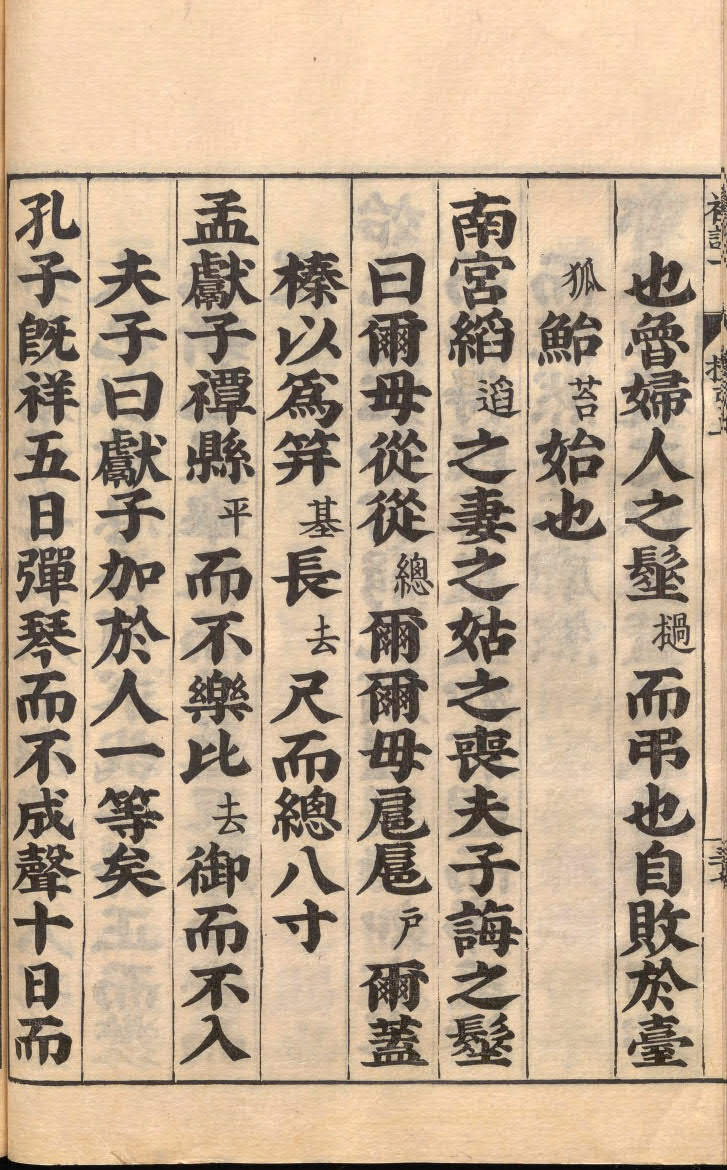 也魯婦人之髽撾而弔也自敗於臺
狐鮐苔始也
南宮縚滔之妻之姑之喪夫子誨之髽
曰爾毋從從總爾爾毋扈扈戶爾蓋
榛以爲笄基長去尺而總八寸
孟獻子禫縣平而不樂比去御而不入
夫子曰獻子加於人一等矣
孔子旣祥五日彈琴而不成聲十日而